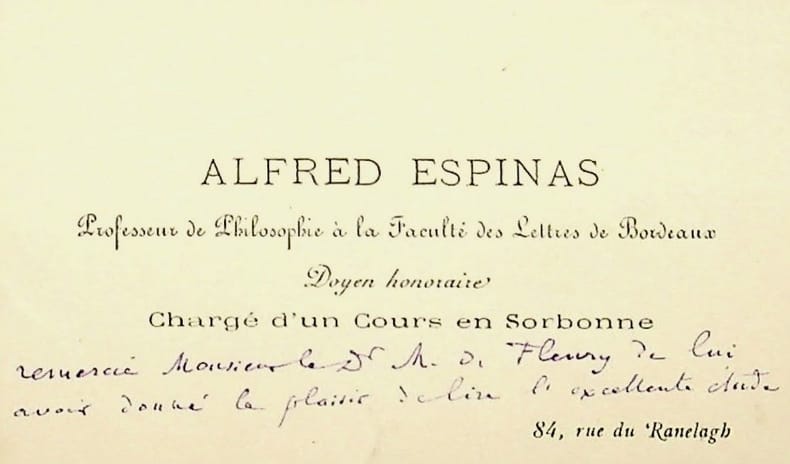 ALFRED ESPINAS
Professeur de Philosophie à la Faculté des Lettres de Bordeaux
Doyen honoraire
Chargé d'un Cours en Sorbonne
remercie Monsieur le Dr M. de Fleury de lui
avoir donné le plaisir de lire l'excellente étude
84, rue du Ranelagh